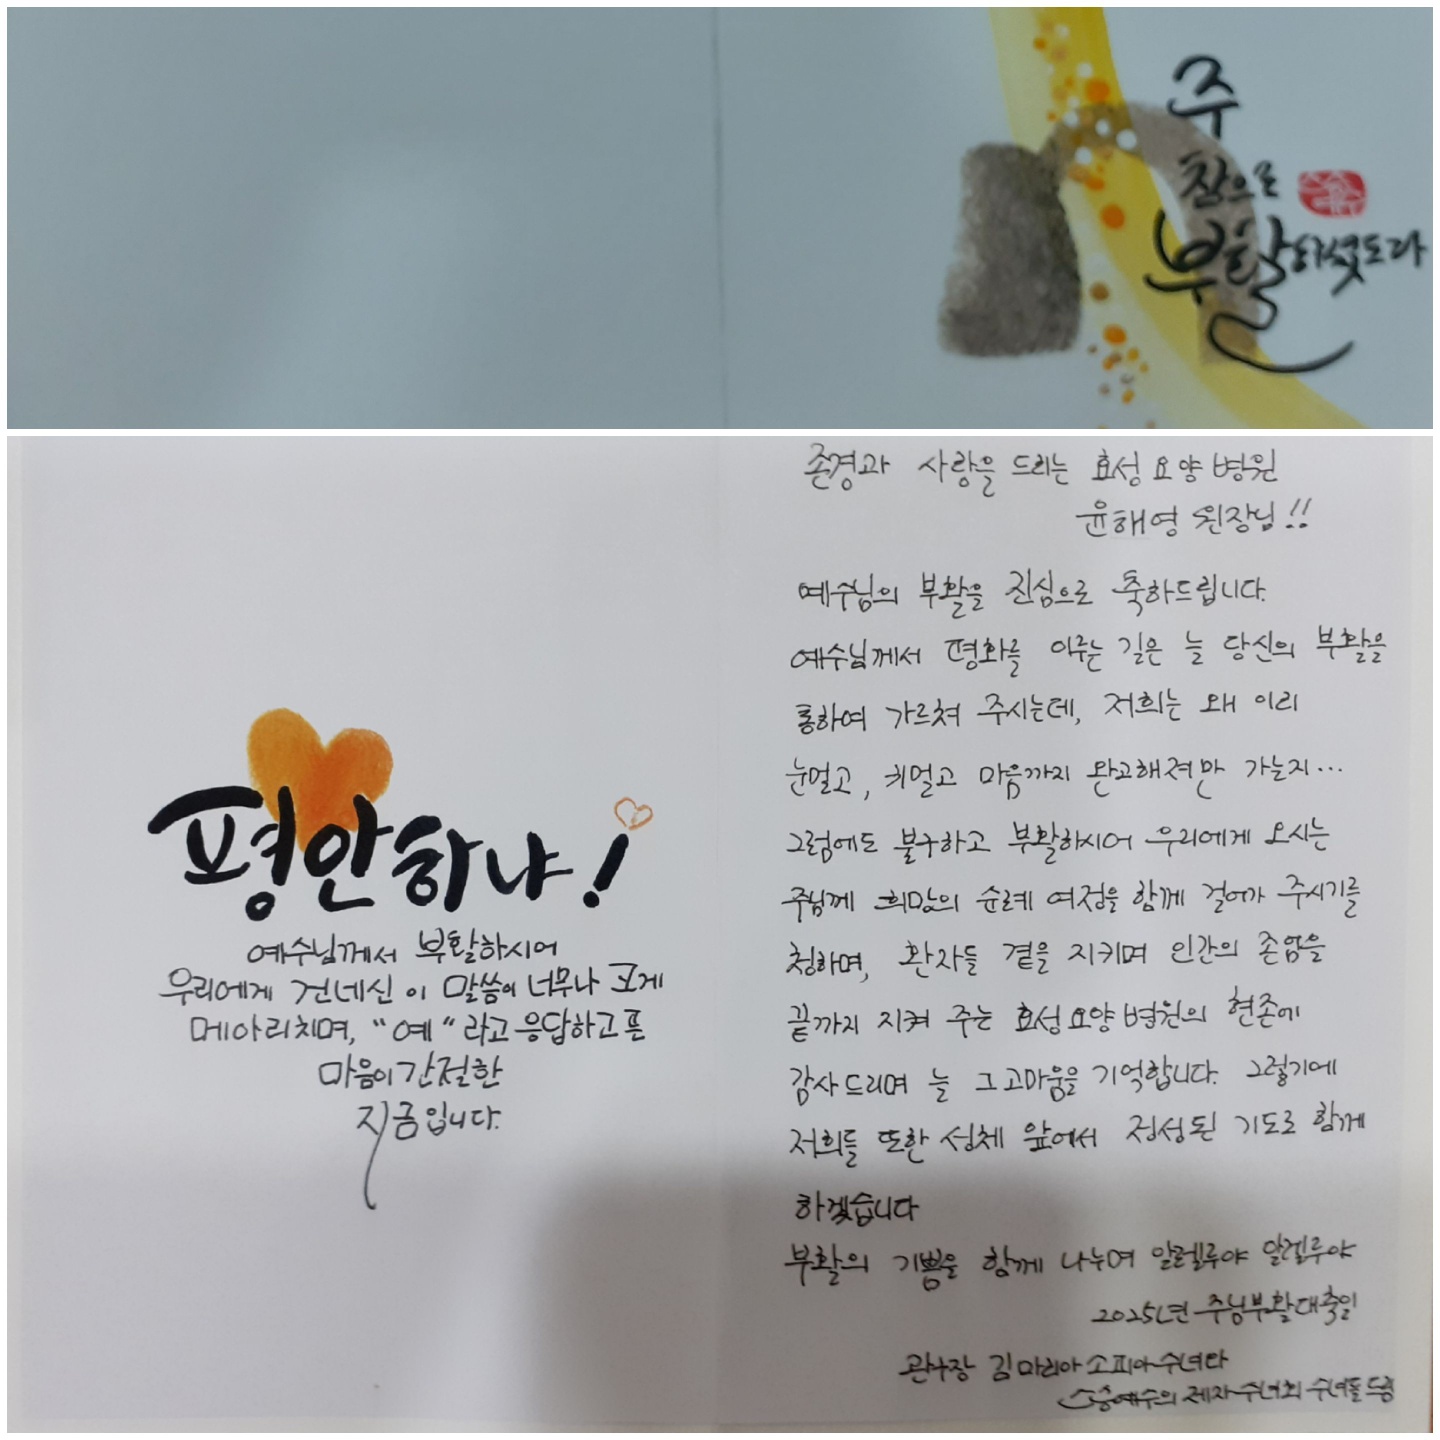 주
참으로
부활하셨도다
평안하냐!
예수님께서 부활하시어
우리에게 건네신 이 말씀이 너무나 크게
메아리치며, "예"라고 응답하고픈
마음이 간절한
지금입니다.
존경과 사랑을 드리는 효성요양병원
윤해영 원장님!!
예수님의 부활을 진심으로 축하드립니다.
예수님께서 평화를 이루는 길은 늘 당신의 부활을
통하여 가르쳐 주시는데, 저희는 왜 이리
눈멀고, 귀멀고 마음까지 완고해져만 가는지...
그럼에도 불구하고 부활하시어 우리에게 오시는
주님께 희망의 순례 여정을 함께 걸어가 주시기를
청하며, 환자들 곁을 지키며 인간의 존엄을
끝까지 지켜 주는 효성요양병원의 현존에
감사드리며 늘 그 고마움을 기억합니다. 그렇기에
저희들 또한 성체 앞에서 정성된 기도로 함께
하겠습니다
부활의 기쁨을 함께 나누며 알렐루야 알렐루야
2025년 주님부활대축일
관구장 김 마리아 소피아 수녀와
스승예수의 제자수녀회 수녀들 드림